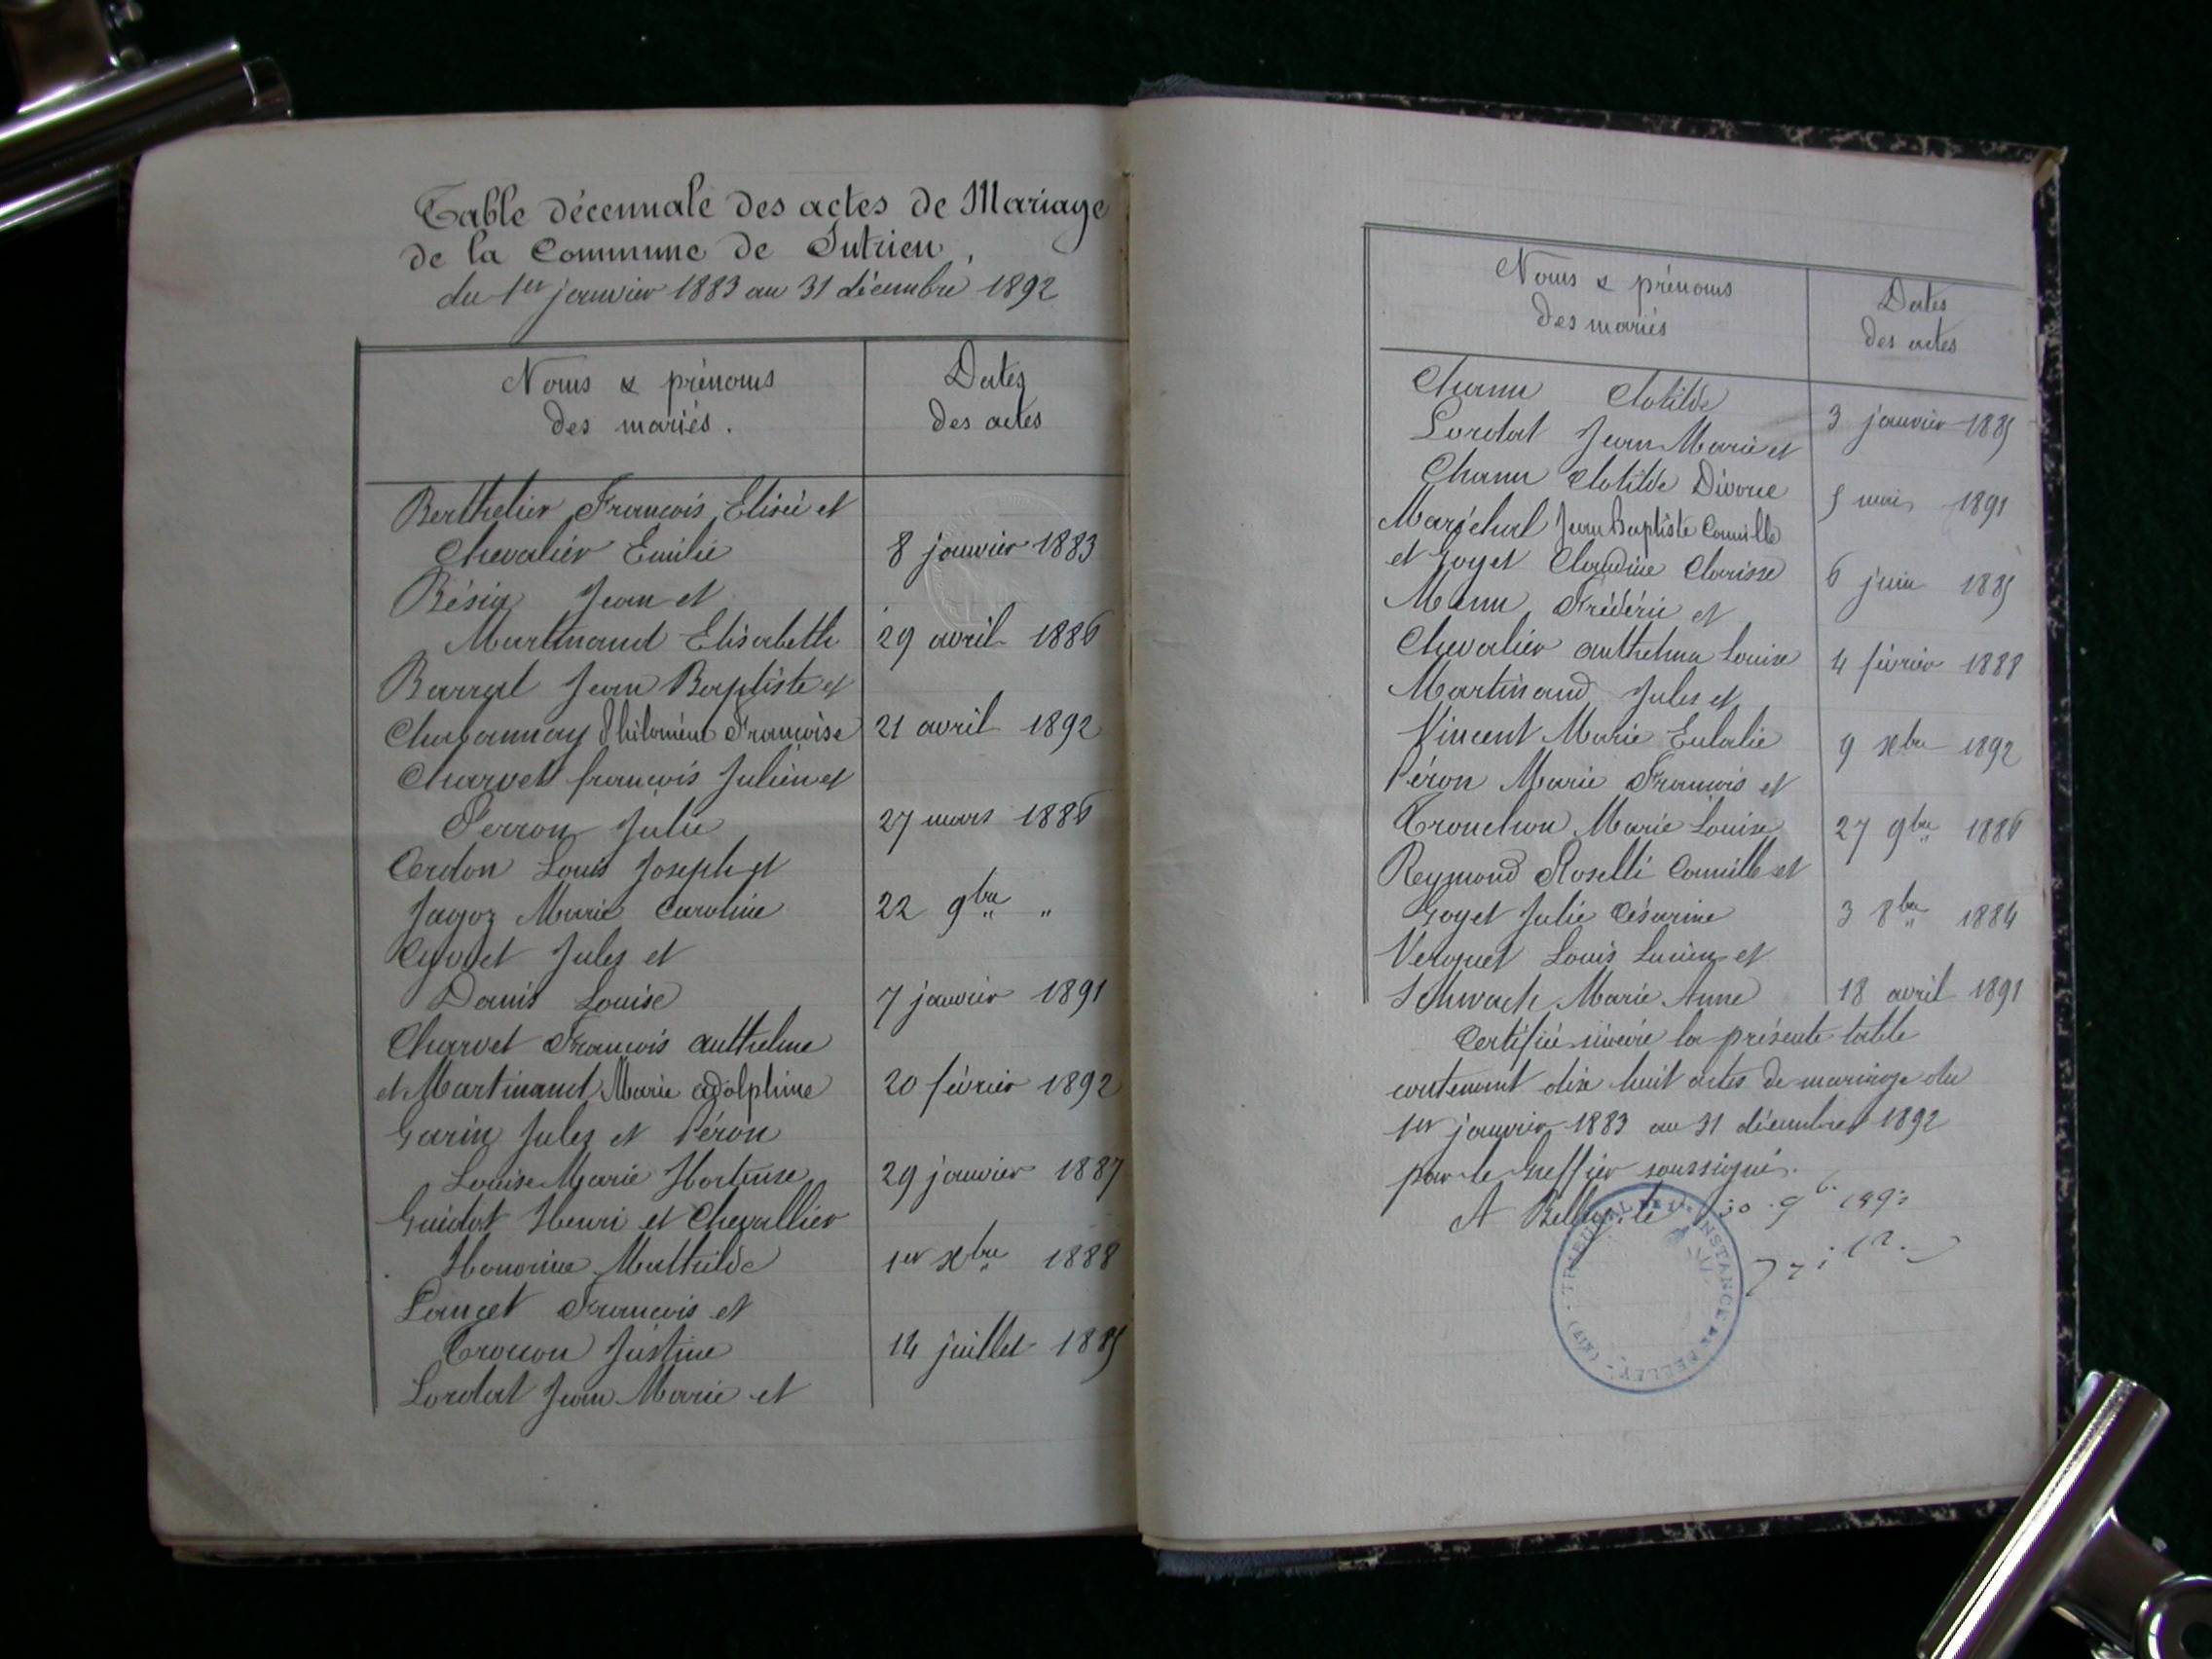 Table décennale des actes de Mariage
de la Commune de Sutrieu,
du 1er janvier 1883 au 31 décembre 1892
Noms & prénoms
des mariés.
Dates
des actes
Berthelier François Elisée et
Chevalier Emilie 8 janvier 1883
Bésia Jean et
Martinand Elisabeth 29 avril 1886
Barral Jean Baptiste et
Chavannay Philomène Françoise 21 avril 1892
Charvet françois Julien et
Perron Julie 27 mars 1886
Cerdon Louis Joseph et
Jagoz Marie Caroline 22 9bre "
Cyvoct Jules et
Danis Louise 7 janvier 1891
Charvet François authelme
et Martinand Marie adolphine 20 février 1892
Garin Jules et Péron
Louise Marie Hortense 29 janvier 1887
Guidot Henri et Chevallier
Honorine Mathilde 1er Xbre 1888
Lancet François et
Crouon Justine 14 juillet 1885
Lordat Jean Marie et
Noms & prénoms
des mariés
Dates
des actes
Chanu Clotilde 3 janvier 1885
Lordat Jean Marie et
Chanu Clotilde Divorce 5 mai 1891
Maréchal Jean Baptiste Camille
et Goyet Claudine Clarisse 6 juin 1885
Menu Frédéric et
Chevalier authelma Louise 4 février 1888
Martinand Jules et
Vincent Marie Eulalie 9 Xbre 1892
Péron Marie François et
Tronchon Marie Louise 27 9bre 1886
Reymond Roselli Camille et
Goyet Julie Césarine 3 8bre 1884
Verguet Louis Lucien et
Schwach Marie Anne 18 avril 1891
Certifiée sincère la présente table
contenant dix huit actes de mariage du
1er janvier 1883 au 31 décembre 1892
par le Greffier soussigné.
A Belley, le 30 9b. 1893
TRIBUNAL DE 1ERE INSTANCE DE BELLEY (AIN)